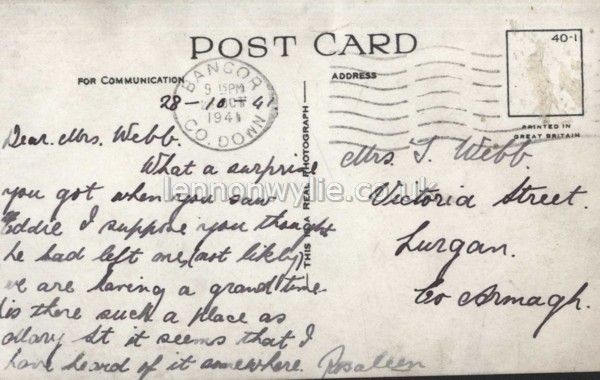 POST CARD
40-1
FOR COMMUNICATION
ADDRESS
BANGOR
CO. DOWN
9 15PM
OCT
1941
PRINTED IN
GREAT BRITAIN
THIS IS A REAL PHOTOGRAPH
28-10-41
Dear. Mrs. Webb.
What a surprise
you got when you saw
Eddie I suppose you thought
he had left me, (not likely)
we are having a grand time.
is there such a place as
Mary St it seems that I
have heard of it somewhere. Rosaleen
Mrs. J. Webb
Victoria Street.
Lurgan.
Co Armagh.
lennonwylie.co.uk